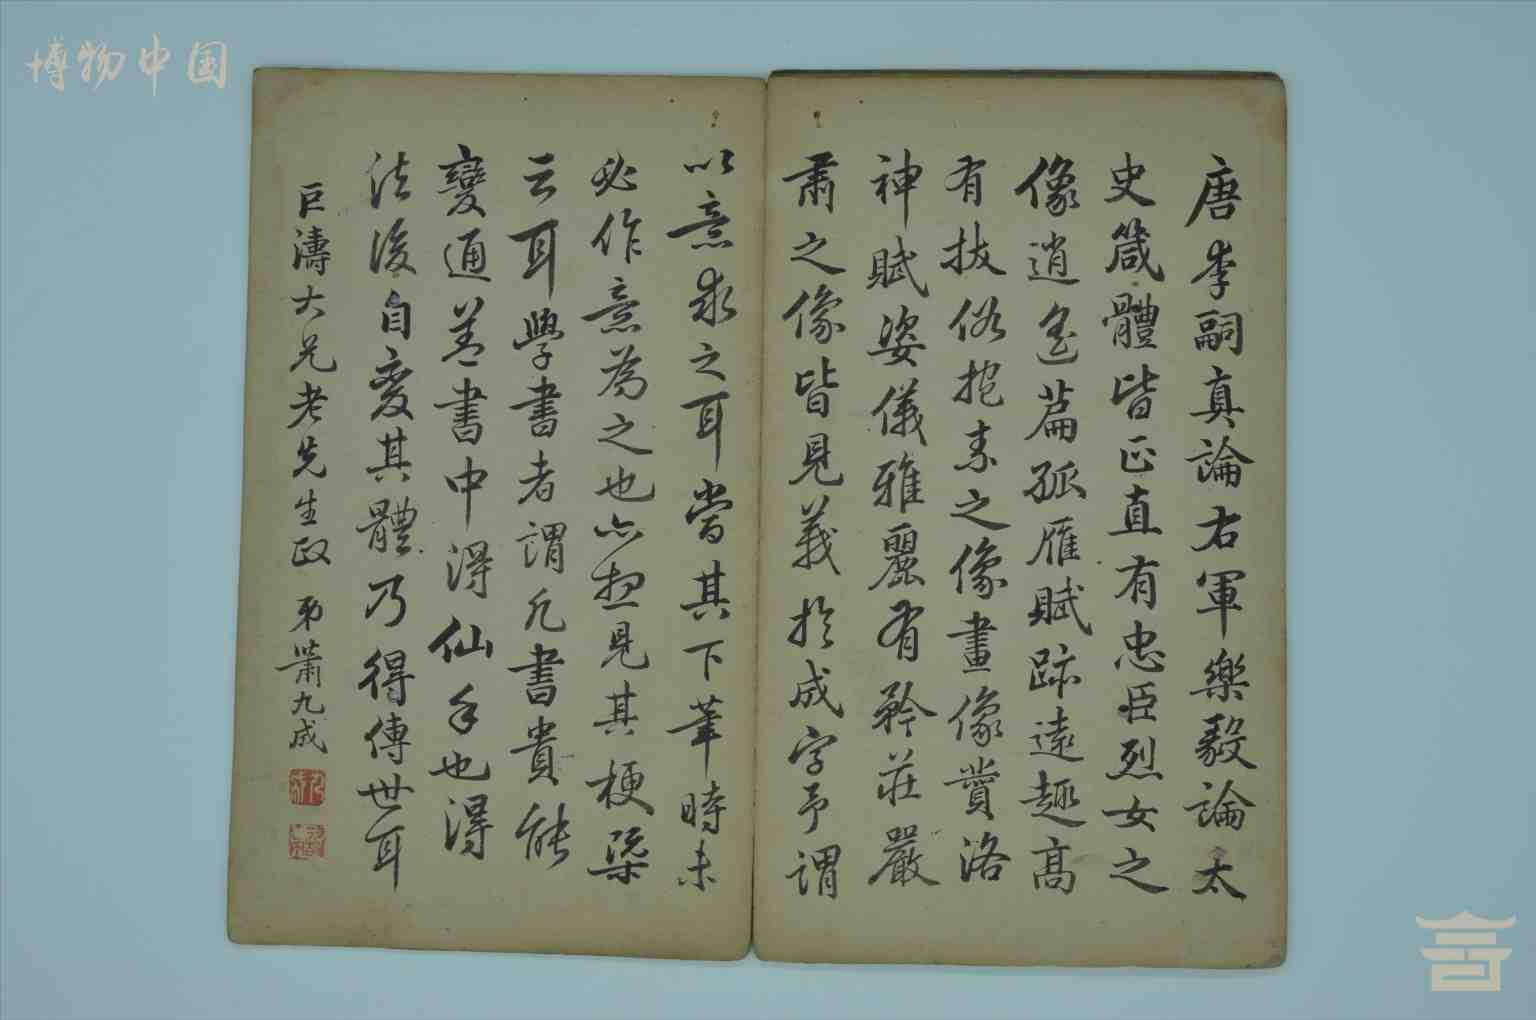 博物中国
唐李嗣真論右軍樂毅論太
史箴體皆正直有忠臣烈女之
像逍遙篇孤雁賦跡遠趣高
有拔俗抱素之像畫像贊洛
神賦姿儀雅麗有矜莊嚴
肅之像皆見義於成字予謂
以意求之耳當其下筆時未
必作意為之也亦想見其梗槩
云耳學書者謂凡書貴能
變通葢書中得仙手也得
法後自變其體乃得傳世耳
巨濤大兄老先生政 弟蕭九成